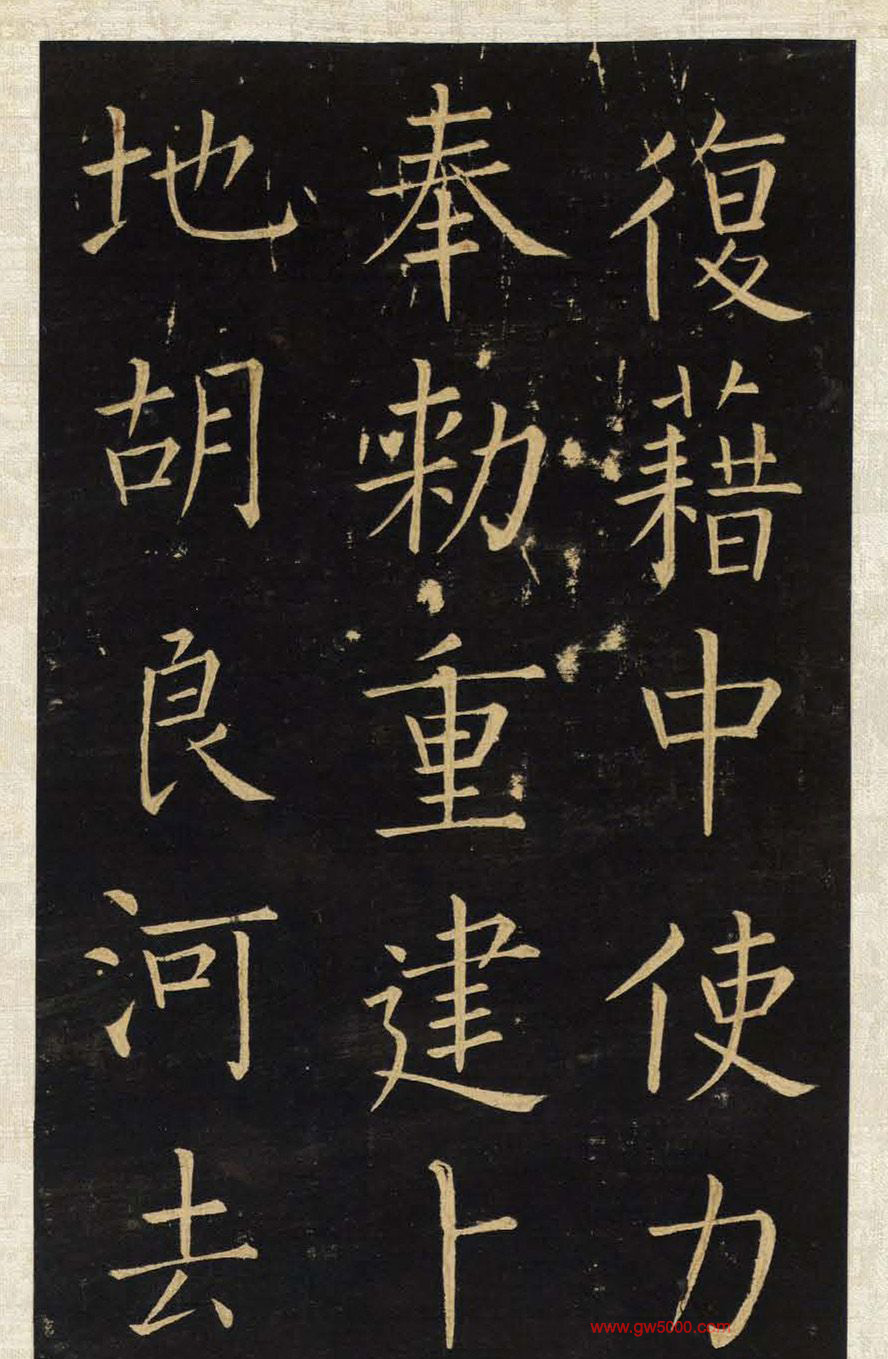 復藉中使力
奉勑重建卜
地胡良河去
www.gw5000.com